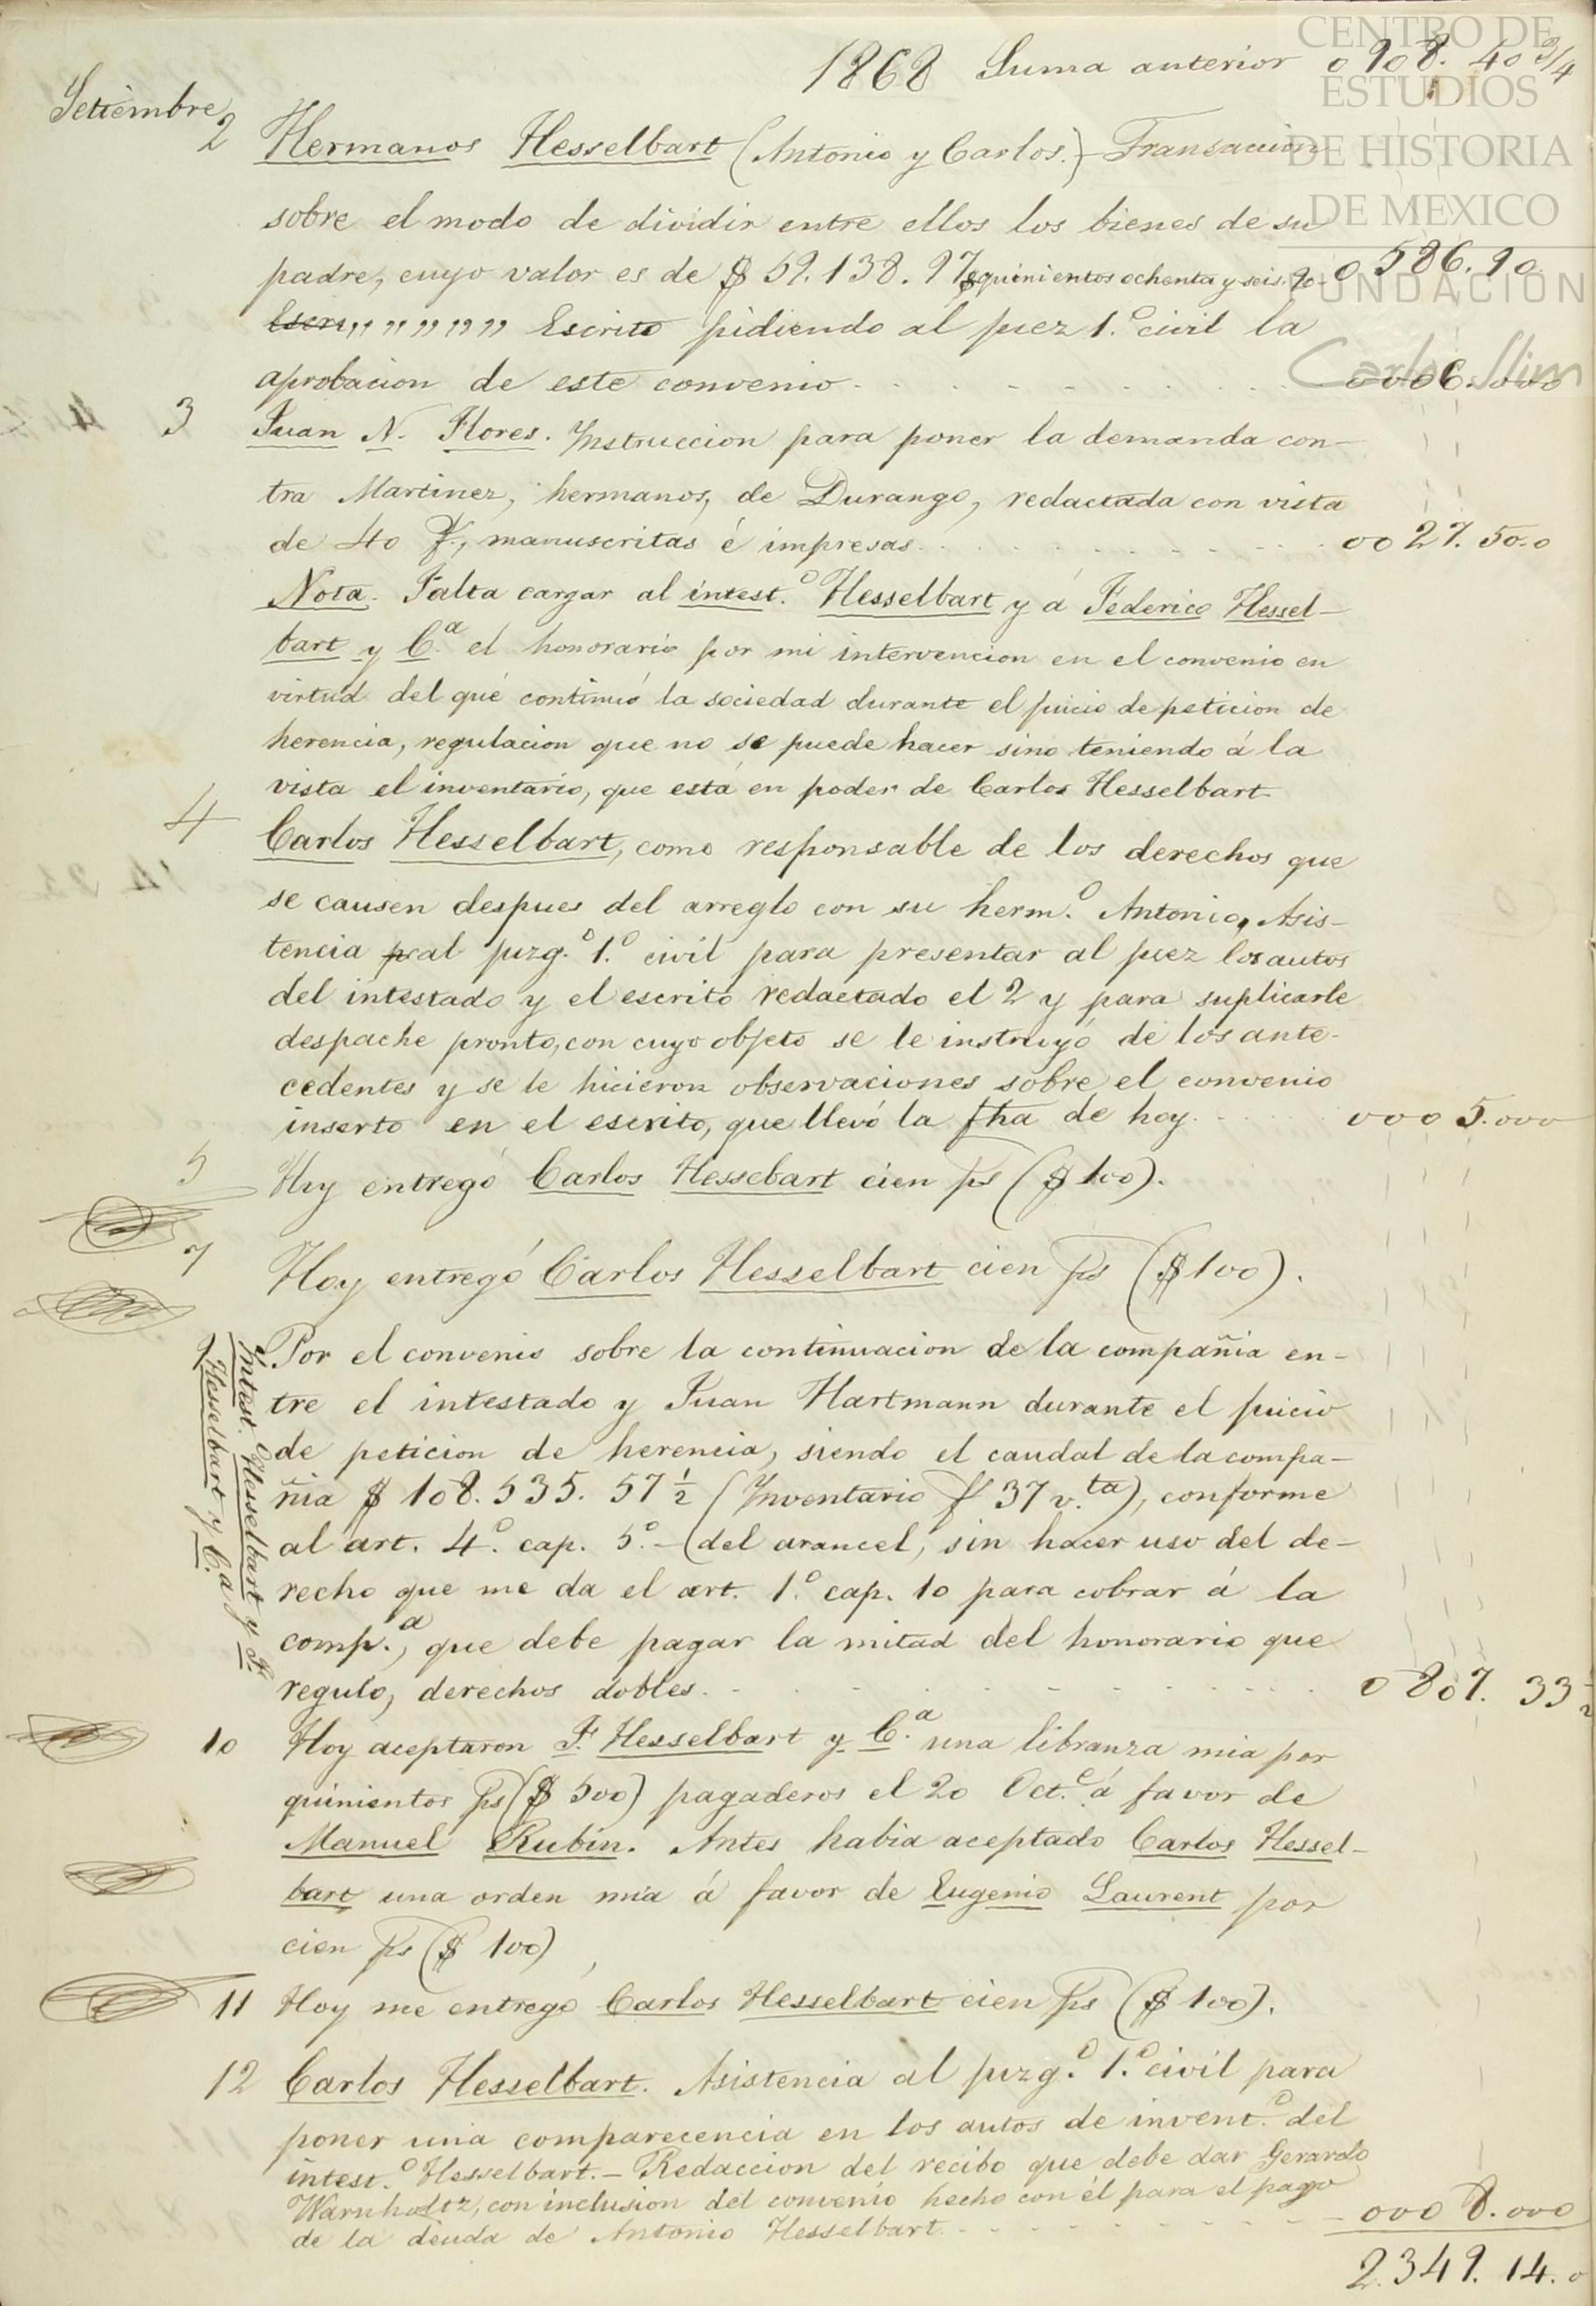 1868 Suma anterior 0908. 40 3/4
Setiembre
2 Hermanos Hesselbart (Antonio y Carlos.) - Transaccion
sobre el modo de dividir entre ellos los bienes de su
padre, cuyo valor es de $ 59.138.97 quinientos ochenta y seis. 90 - 0586.90.
Escri,, ,, ,, ,, ,, ,, Escrito pidiendo al juez 1.º civil la
aprobacion de este convenio. 0006.000
3 Juan N. Flores. Instruccion para poner la demanda con-
tra Martinez, hermanos, de Durango, redactada con vista
de 40 f., manuscritas é impresas. 0027.50.0
Nota. Falta cargar al intest.º Hesselbart y á Federico Hessel-
bart y C.ª el honorario por mi intervencion en el convenio en
virtud del qué continuó la sociedad durante el juicio de peticion de
herencia, regulacion que no se puede hacer sino teniendo á la
vista el inventario, que está en poder de Carlos Hesselbart.
4 Carlos Hesselbart, como responsable de los derechos que
se causen despues del arreglo con su herm.º Antonio, Asis-
tencia al juzg.º 1.º civil para presentar al juez los autos
del intestado y el escrito redactado el 2 y para suplicarle
despache pronto, con cuyo objeto se le instruyó de los ante-
cedentes y se le hicieron observaciones sobre el convenio
inserto en el escrito, que llevó la fha de hoy. 0005.000
5 Hoy entregó Carlos Hessebart cien ps ($ 100).
7 Hoy entregó Carlos Hesselbart cien ps ($ 100).
9 Intest.º Hesselbart y F.
Hesselbart y C.a
Por el convenio sobre la continuacion de la compañia en-
tre el intestado y Juan Hartmann durante el juicio
de peticion de herencia, siendo el caudal de la compa-
ñia $ 108.535.57 1/2 (Inventario f 37 v.ta), conforme
al art. 4.º cap. 5.º - (del arancel, sin hacer uso del de-
recho que me da el art. 1.º cap. 10 para cobrar á la
comp.ª, que debe pagar la mitad del honorario que
regulo, derechos dobles. 0807. 33 1/2
10 Hoy aceptaron F. Hesselbart y C.ª una libranza mia por
quinientos ps ($ 500) pagaderos el 20 Oct.e á favor de
Manuel Rubin. Antes habia aceptado Carlos Hessel-
bart una orden mia á favor de Eugenio Laurent por
cien ps ($ 100)
11 Hoy me entregó Carlos Hesselbart cien ps ($ 100).
12 Carlos Hesselbart. Asistencia al juzg.º 1.º civil para
poner una comparecencia en los autos de invent.º del
intest.º Hesselbart. - Redaccion del recibo que debe dar Gerardo
Warnholtz, con inclusion del convenio hecho con él para el pago
de la deuda de Antonio Hesselbart. 0008.000
2.349. 14.0
CENTRO DE
ESTUDIOS
DE HISTORIA
DE MEXICO
FUNDACION
Carlos Slim